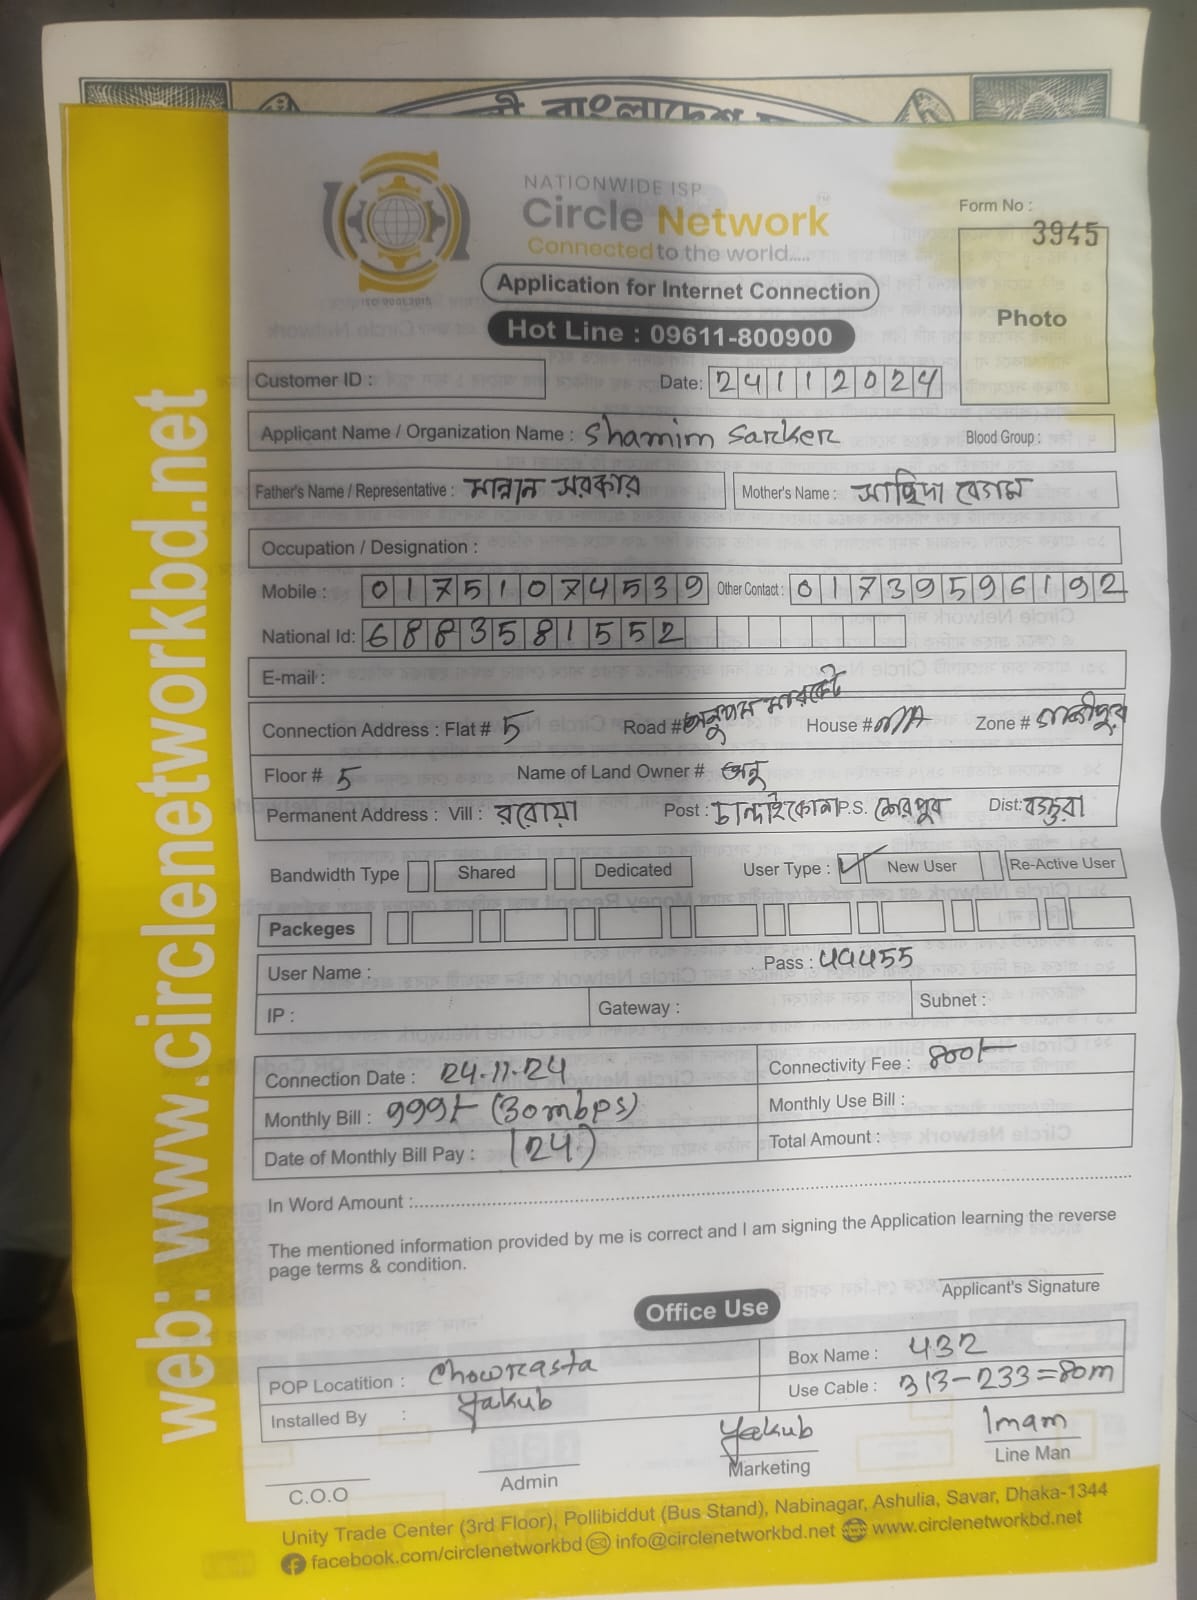 বাংলাদেশ
NATIONWIDE ISP
Circle Network™
Connected to the world.....
ISO 9001:2015
Form No :
3945
Photo
Application for Internet Connection
Hot Line : 09611-800900
Customer ID :
Date: 24112024
Applicant Name / Organization Name : Shamim Sarker Blood Group :
Father's Name / Representative : মান্নান সরকার Mother's Name : সাহিদা বেগম
Occupation / Designation :
Mobile : 01751074539 Other Contact : 01739596192
National Id: 6883581552
E-mail :
Connection Address : Flat # 5 Road # অনুপম মারকেট House # N/A Zone # গাজীপুর
Floor # 5 Name of Land Owner # অনু
Permanent Address : Vill : ররোয়া Post : চান্দাইকোনা P.S. শেরপুর Dist: বগুরা
Bandwidth Type Shared Dedicated User Type : ✓ New User Re-Active User
Packeges
User Name : Pass : 44455
IP : Gateway : Subnet :
Connection Date : 24-11-24 Connectivity Fee : 800/-
Monthly Bill : 999/- (30mbps) Monthly Use Bill :
Date of Monthly Bill Pay : (24) Total Amount :
In Word Amount :
The mentioned information provided by me is correct and I am signing the Application learning the reverse
page terms & condition.
Applicant's Signature
Office Use
POP Locatition : Chowrasta Box Name : 432
Installed By : Yakub Use Cable : 313-233=80m
Yakub Imam
C.O.O Admin Marketing Line Man
Unity Trade Center (3rd Floor), Pollibiddut (Bus Stand), Nabinagar, Ashulia, Savar, Dhaka-1344
facebook.com/circlenetworkbd info@circlenetworkbd.net www.circlenetworkbd.net
web: www.circlenetworkbd.net